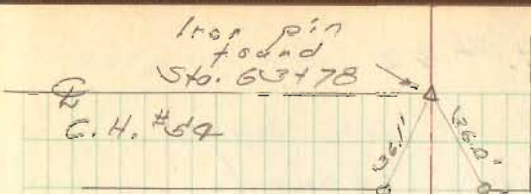 Iron pin
found
Sta. 63+78
℄
C.H. #54
36.1'
36.0'